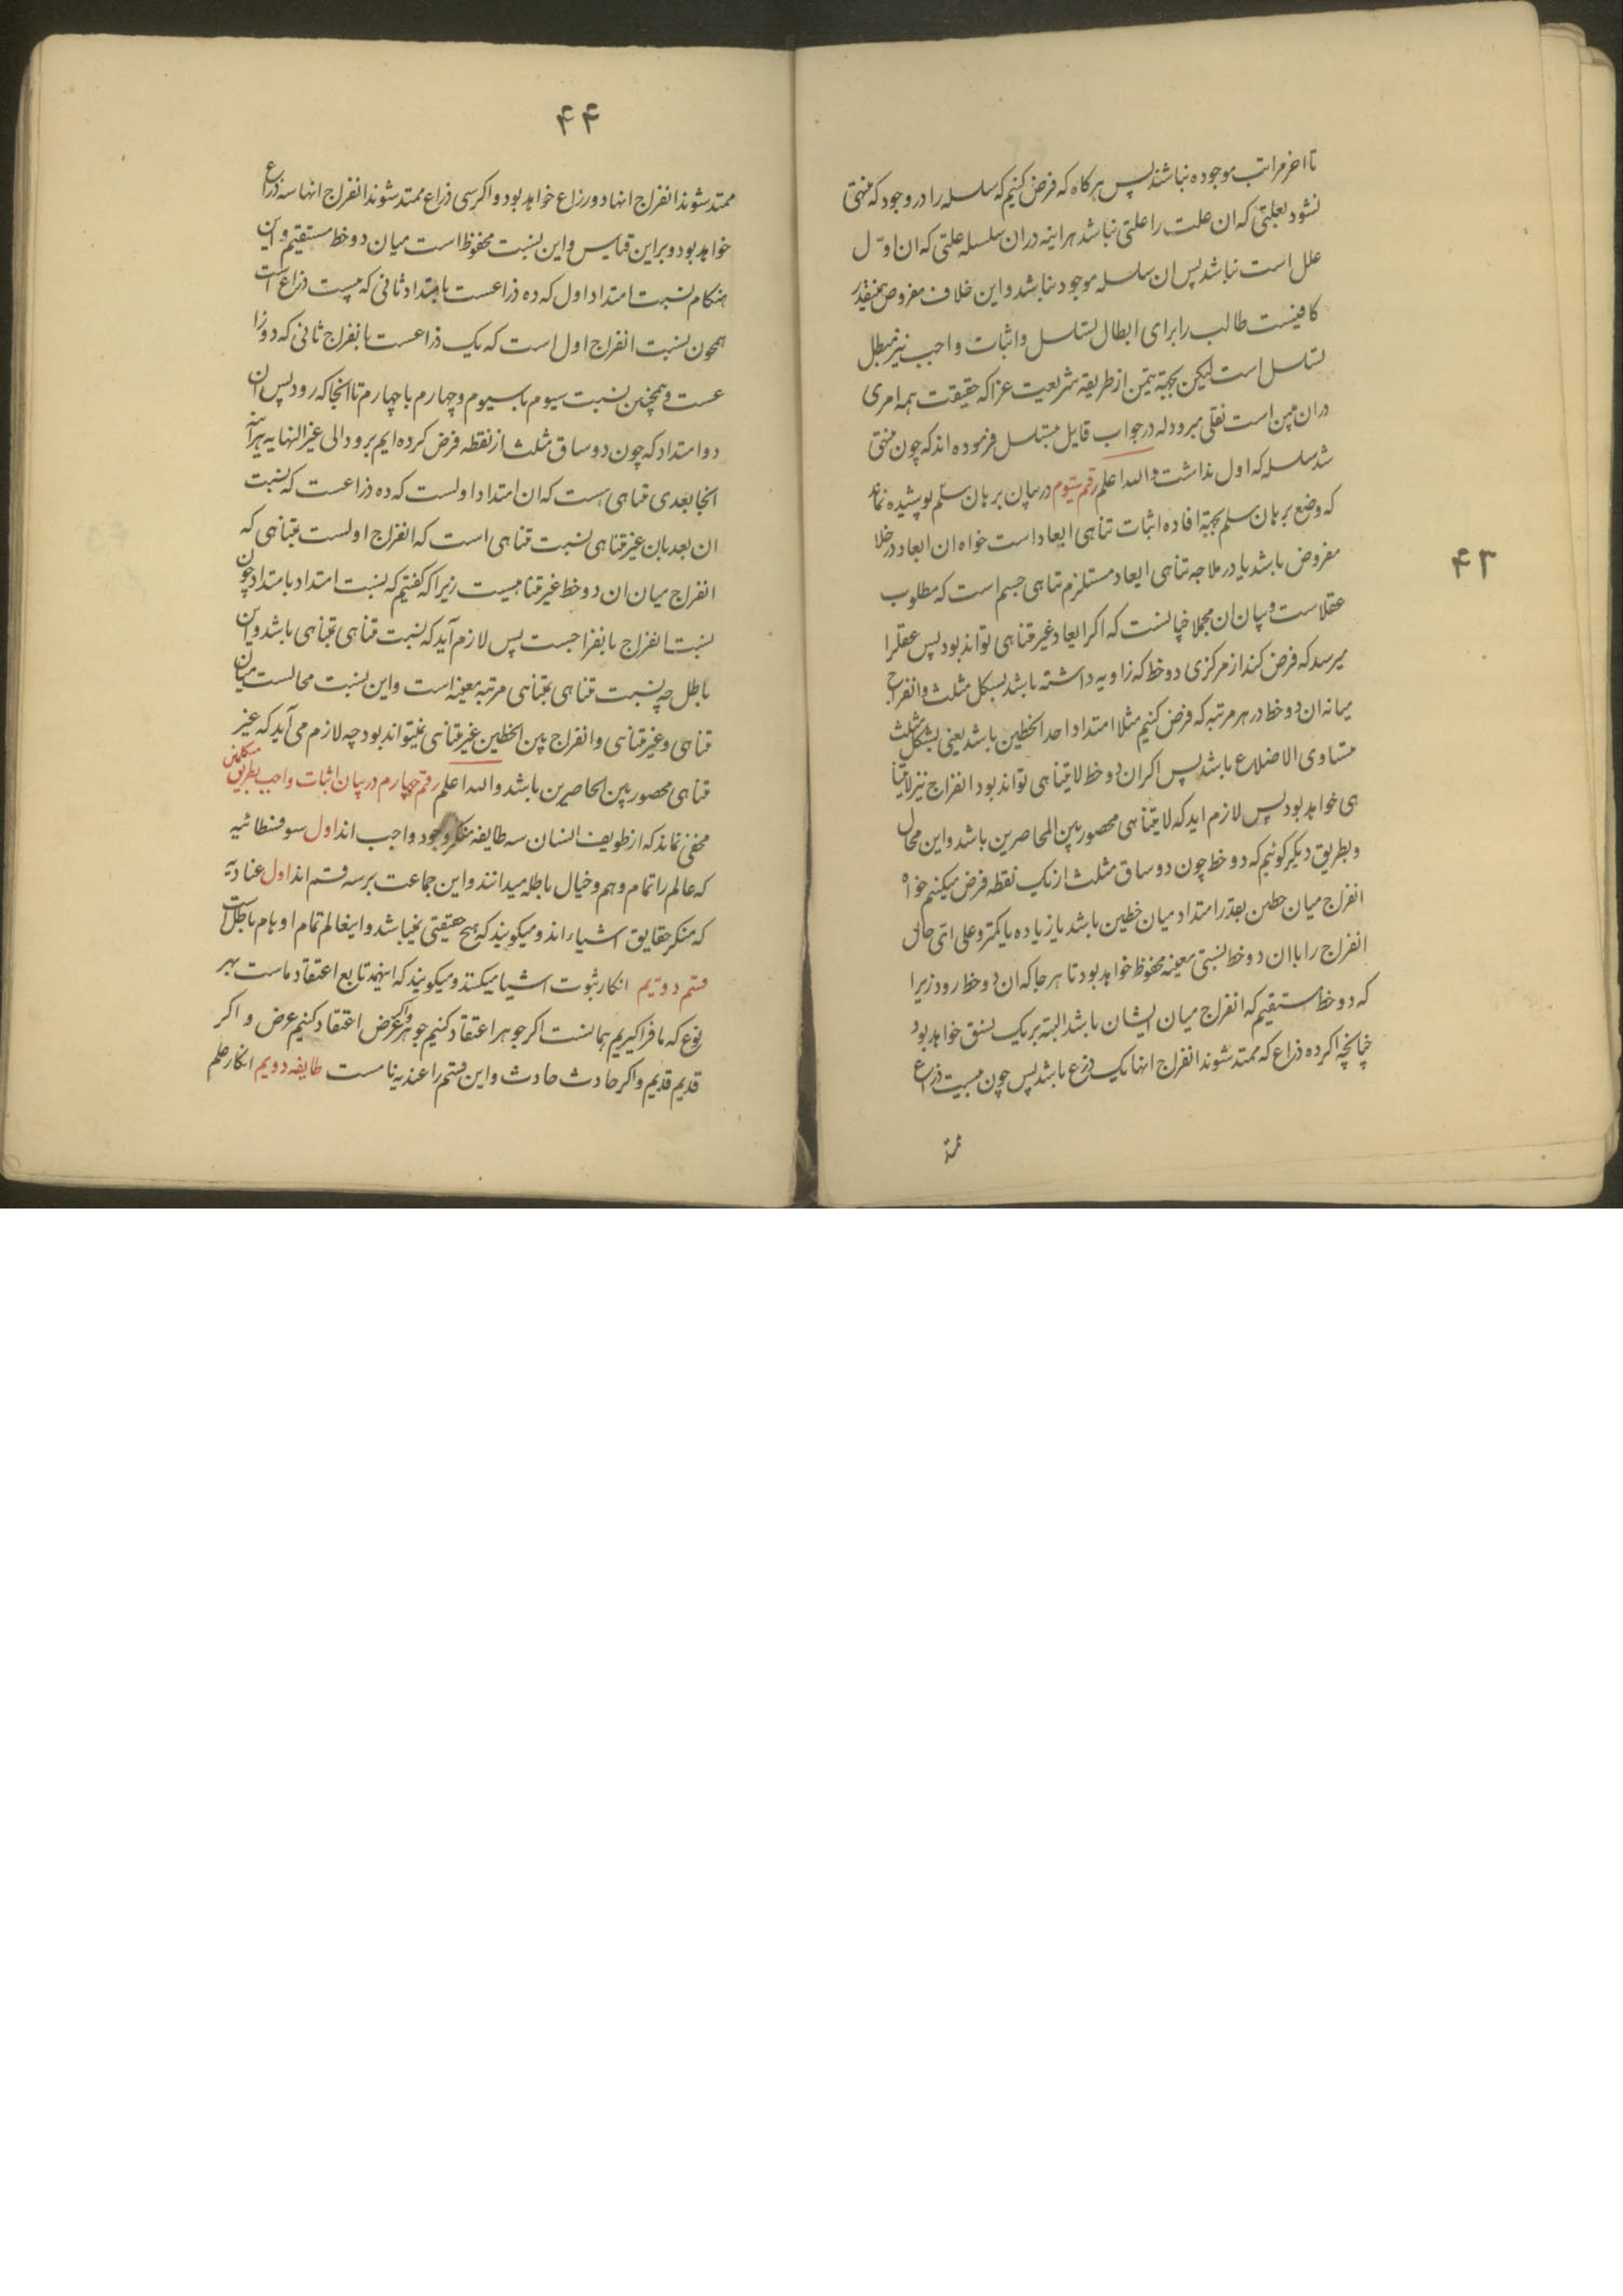 ۴۳
تا اخر مراتب موجوده نباشند پس هرکاه که فرض کنیم که سلسله را در وجود که منتهی
نشود بعلتی که ان علت را علتی نباشد هراینه دران سلسله علتی که ان اوّل
علل است نباشد پس ان سلسله موجود نباشد و این خلاف مفروض همینقدر
کافیست طالب را برای ابطال تسلسل و اثبات واجب نیز مبطل
تسلسل است لیکن بجهة تیمن از طریقه شریعت عزا که حقیقت همه امری
دران مبین است نقلی میرود له در جواب قایل بتسلسل فرموده اند که چون منتهی
شد سلسله که اول نداشت والله اعلم رقم سیّوم در بیان برهان سلّم پوشیده نماند
که وضع برهان سلم بجهة افاده اثبات تناهی ابعاد است خواه ان ابعاد در خلا
مفروض باشد یا در ملا چه تناهی ابعاد مستلزم تناهی جسم است که مطلوب
عقلاست و بیان ان مجملا چنانست که اکر ابعاد غیر متناهی تواند بود پس عقلرا
میرسد که فرض کند از مرکزی دو خط که زاویه داشته باشد بشکل مثلث و انفراج
میانه ان دو خط در هر مرتبه که فرض کنیم مثلا امتداد احد الخطین باشد یعنی بشکل مثلث
متساوی الاضلاع باشد پس اکر ان دو خط لایتناهی تواند بود انفراج نیز لایتنا
هی خواهد بود پس لازم اید که لایتناهی محصور بین الحاصرین باشد و این محال
و بطریق دیکر کوئیم که دو خط چون دو ساق مثلث از یک نقطه فرض میکنیم خواه
انفراج میان خطین بقدر امتداد میان خطین باشد یا زیاده یا کمتر و علی اتی حال
انفراج را با ان دو خط نسبتی معینه محفوظ خواهد بود تا هر جا که ان دو خط رود زیرا
که دو خط مستقیم که انفراج میان ایشان باشد البته بر یک نسق خواهد بود
چنانچه اکر ده ذراع که ممتد شوند انفراج انها یک ذرع باشد پس چون بیست ذراع
ممتد
۴۴
ممتد شوند انفراج انها دو رزاع خواهد بود و اکر سی ذراع ممتد شوند انفراج انها سه ذراع
خواهد بود و براین قیاس و این نسبت محفوظ است میان دو خط مستقیم و این
هنکام نسبت امتداد اول که ده ذراعست با متداد ثانی که بیست ذراع است
همچون نسبت انفراج اول است که یک ذراعست با نفراج ثانی که دو ذرا
عست و همچنین نسبت سیوم با سیوم و چهارم با چهارم تا انجا که رود پس ان
دو امتداد که چون دو ساق مثلث از نقطه فرض کرده ایم برود الی غیر النهایه هراینه
انجا بعدی متناهی هست که ان امتداد اولست که ده ذراعست که نسبت
ان بعد بان غیر متناهی نسبت متناهی است که انفراج اولست بمتناهی که
انفراج میان ان دو خط غیر متناهیست زیرا که کفتیم که نسبت امتداد بامتداد چون
نسبت انفراج بانفراجست پس لازم آید که نسبت متناهی بمتناهی باشد و این
باطل چه نسبت متناهی بمتناهی مرتبه معینه است و این نسبت محالست میان
متناهی و غیر متناهی و انفراج بین الخطین غیر متناهی نمیتواند بود چه لازم می آید که غیر
متناهی محصور بین الحاصرین باشد والله اعلم رقم چهارم در بیان اثبات واجب بطریق متکلمین
مخفی نماند که از طویف انسان سه طایفه منکر وجود واجب اند اول سوفسطائیه
که عالم را تمام وهم و خیال باطله میدانند و این جماعت بر سه قسم اند اول عنادیّه
که منکر حقایق اشیاء اند و میکویند که هیچ حقیقتی نمیباشد و اینعالم تمام اوهام باطل است
قسم دویّم انکار ثبوت اشیا میکنند و میکویند که اینهمه تابع اعتقاد ماست بهر
نوع که ما فرا کیریم همانست اکر جوهر اعتقاد کنیم جوهر واکر عرض اعتقاد کنیم عرض و اکر
قدیم قدیم و اکر حادث حادث و این قسم را عندیه نامست طایفه دویم انکار علم